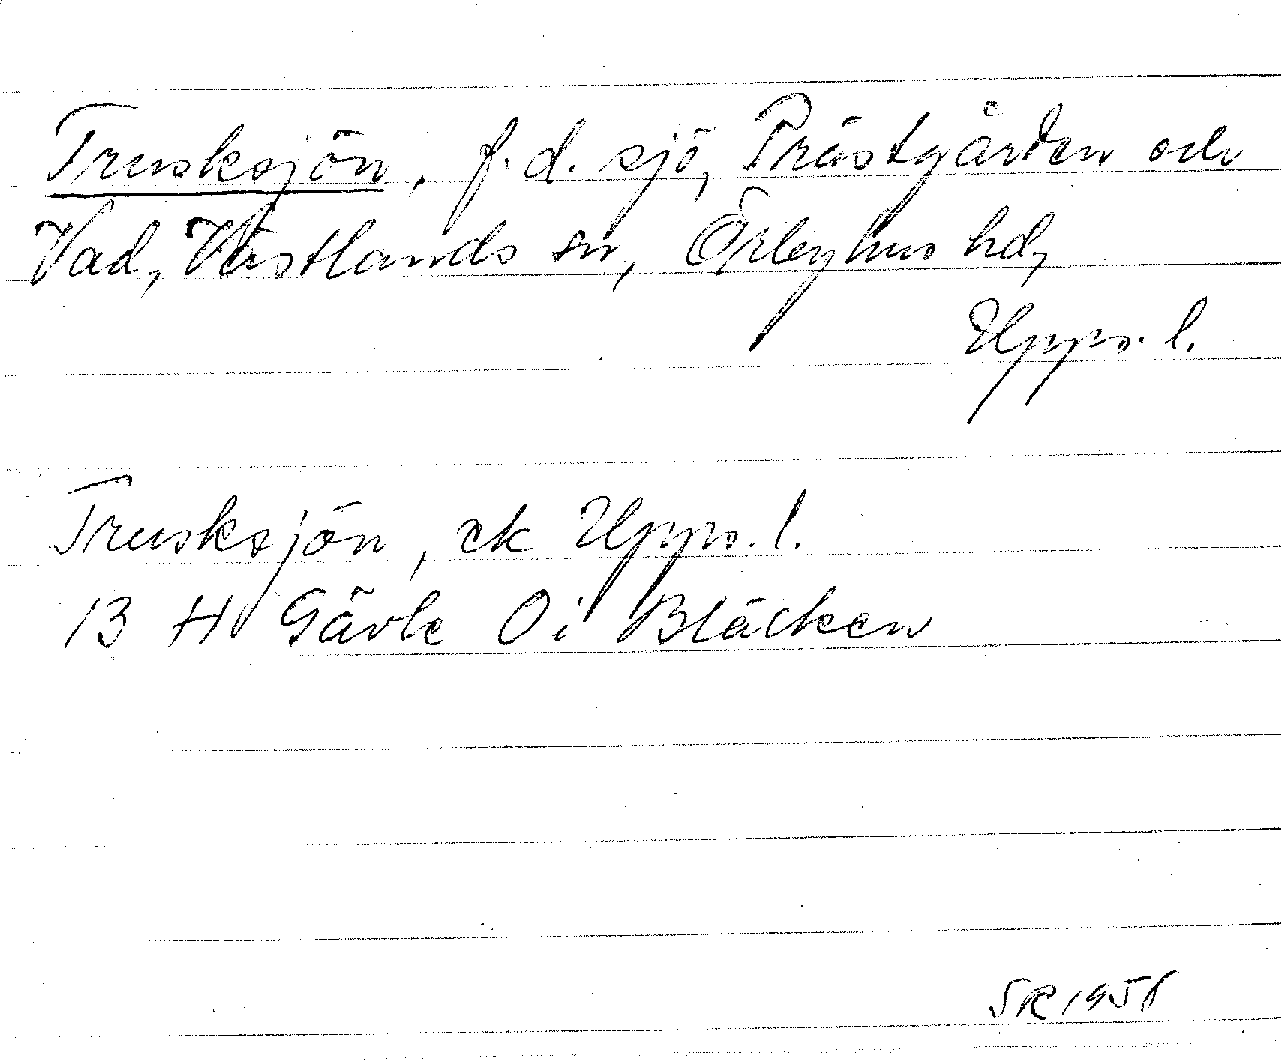 Trusksjön, f.d. sjö, Prästgården och
Vad, Västlands sn, Örbyhus hd,
Upps. l.
Trusksjön, ek Upps. l.
13 H Gävle 0i Bläcken
SR 1951